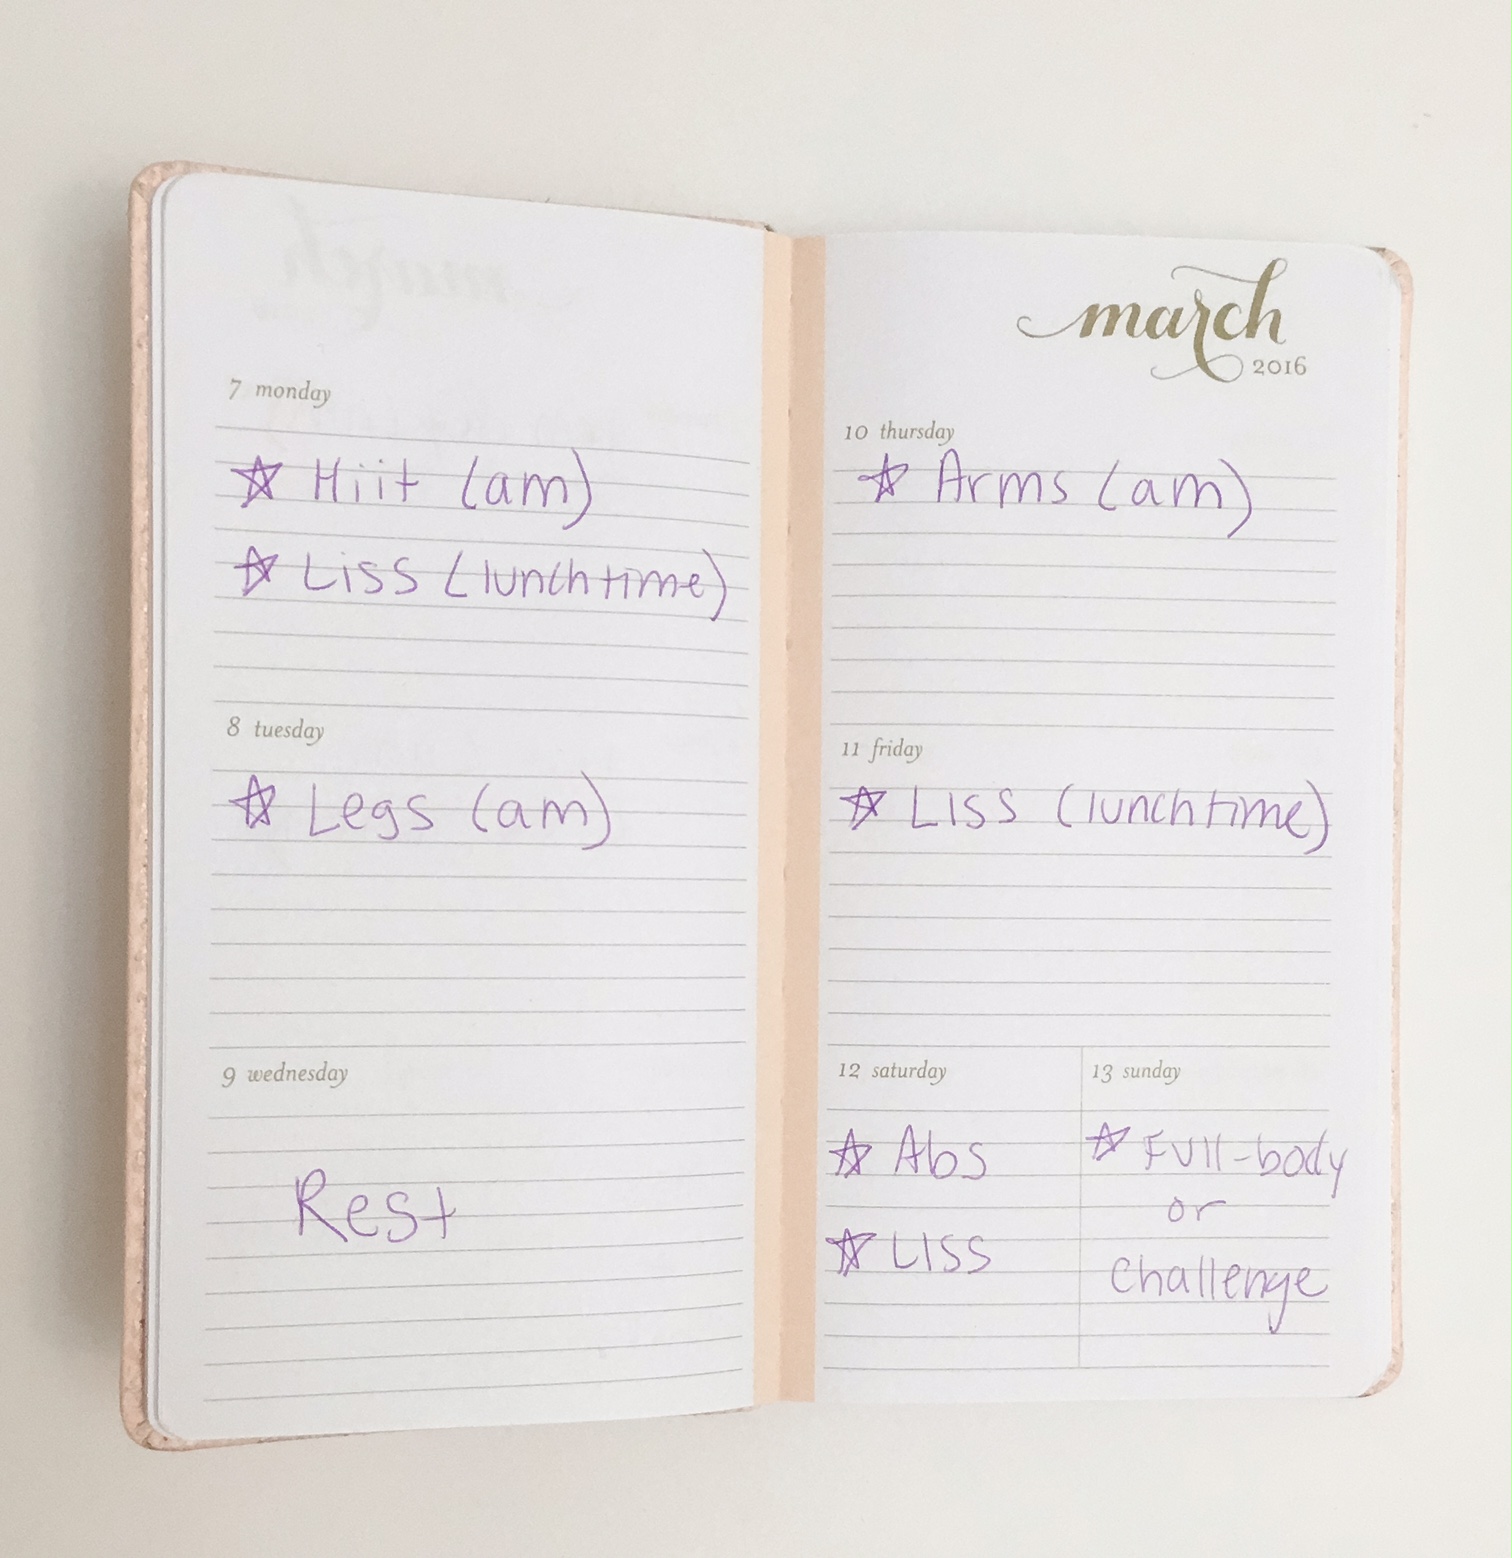 7 monday
☆ Hiit (am)
☆ Liss (lunchtime)
8 tuesday
☆ Legs (am)
9 wednesday
Rest
march
2016
10 thursday
☆ Arms (am)
11 friday
☆ LISS (lunchtime)
12 saturday
☆ Abs
☆ LISS
13 sunday
☆ Full-body
or
Challenge